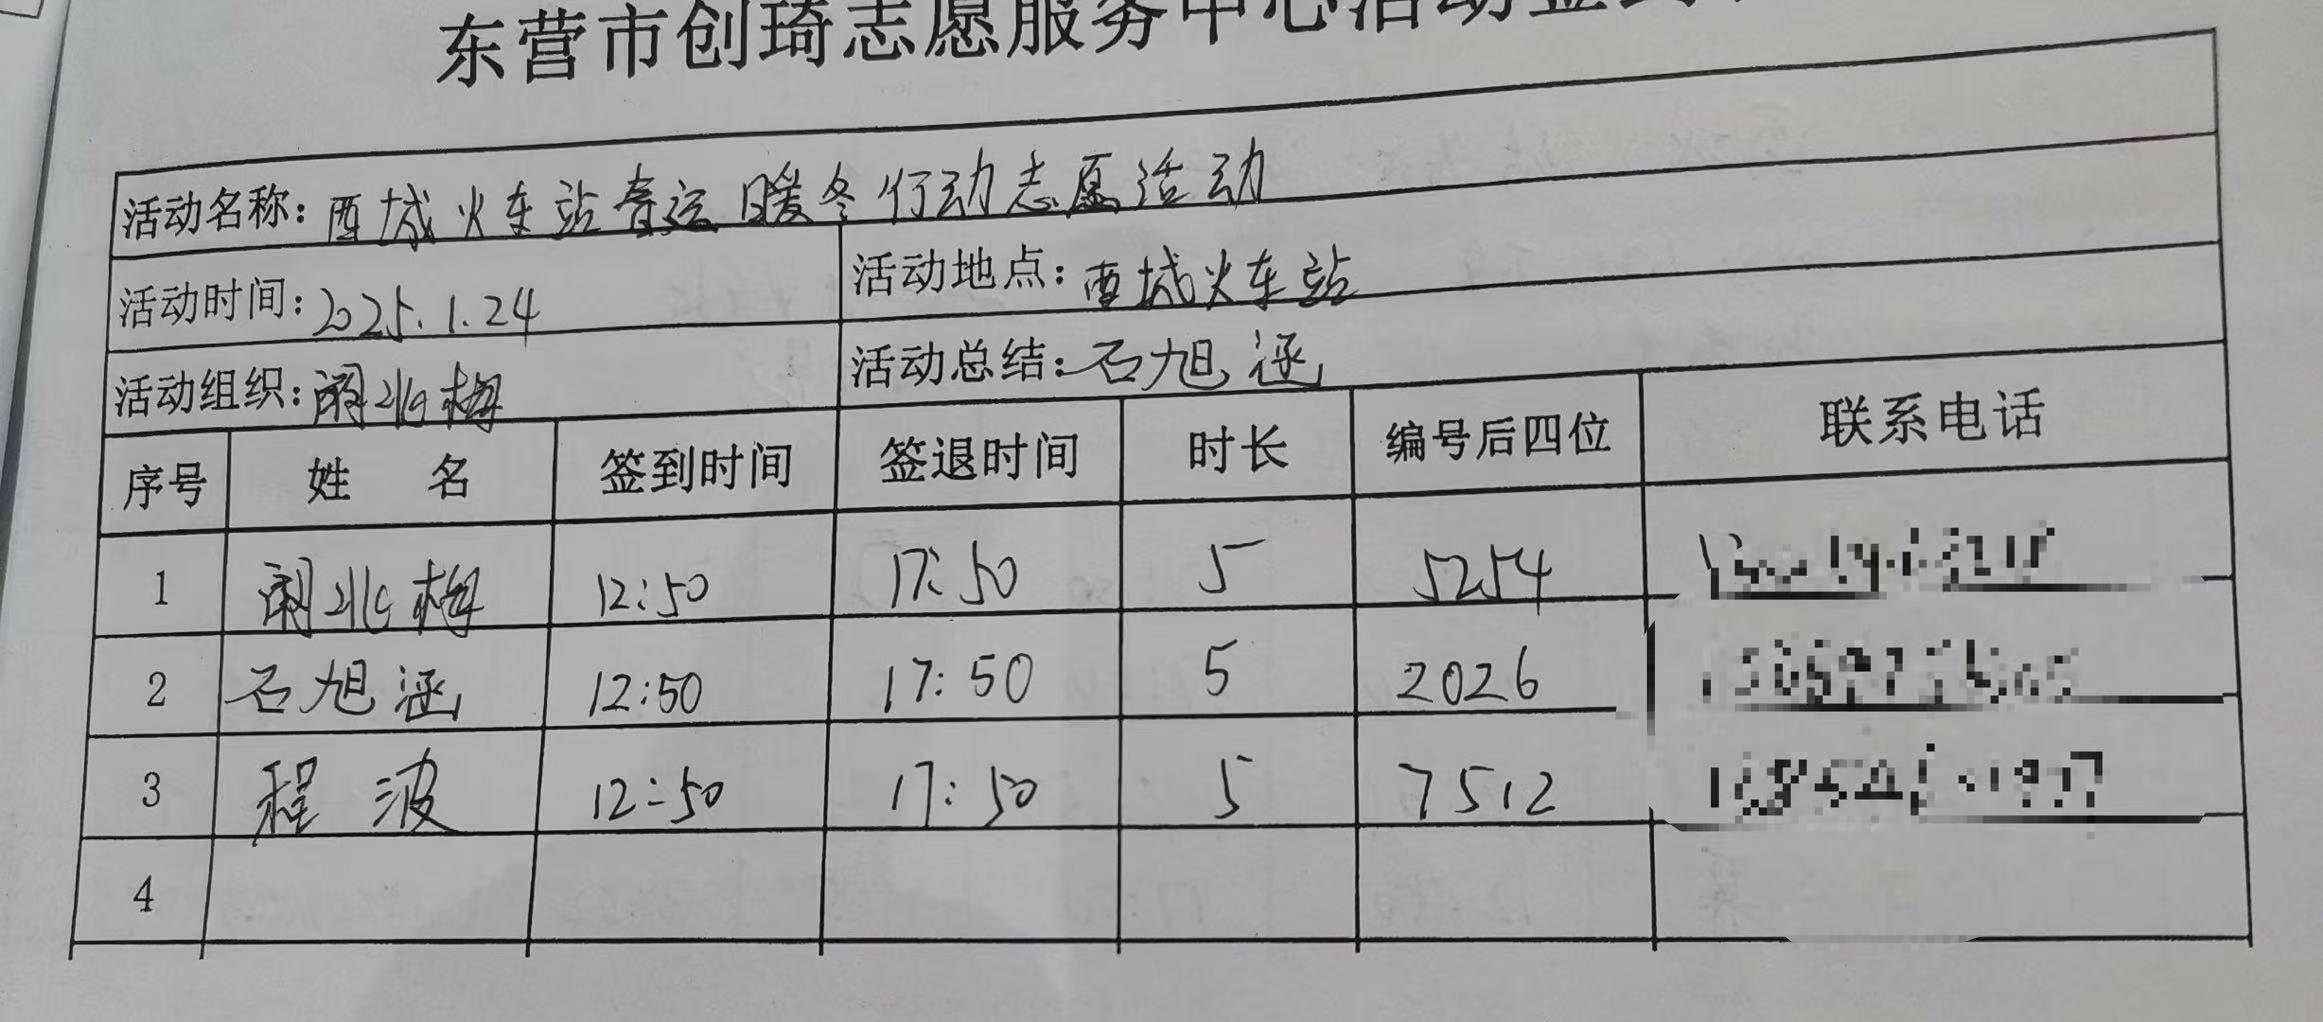 东营市创琦志愿服务中心活动签到
活动名称：西城火车站春运暖冬行动志愿活动
活动时间：2025.1.24 活动地点：西城火车站
活动组织：北梅 活动总结：石旭涵
序号 姓 名 签到时间 签退时间 时长 编号后四位 联系电话
1 北梅 12:50 17:50 5 5254
2 石旭涵 12:50 17:50 5 2026
3 程波 12:50 17:50 5 7512
4